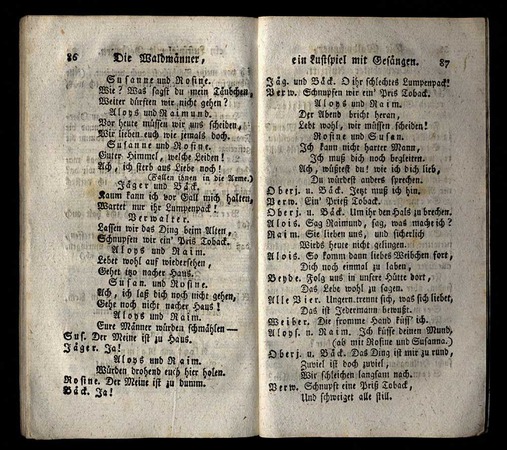 86 Die Waldmänner,
Susanne und Rosine.
Wie? Was sagst du mein Täubchen,
Weiter dürften wir nicht gehen?
Aloys und Raimund.
Vor heute müssen wir uns scheiden,
Wir lieben euch wie jemals doch.
Susanne und Rosine.
Guter Himmel, welche Leiden!
Ach, ich sterb aus Liebe noch!
(Fallen ihnen in die Arme.)
Jäger und Bäck.
Kaum kann ich vor Gall mich halten,
Wartet nur ihr Lumpenpack!
Verwalter.
Lassen wir das Ding beim Alten,
Schnupfen wir ein' Pris Toback.
Aloys und Raim.
Lebet wohl auf wiedersehen,
Gehet itzo nacher Haus.
Susan. und Rosine.
Ach, ich laß dich noch nicht gehen,
Geht noch nicht nacher Haus!
Aloys und Raim.
Eure Männer würden schmählen —
Sus. Der Meine ist zu Haus.
Jäger. Ja!
Aloys und Raim.
Würden drohend euch hier holen.
Rosine. Der Meine ist zu dumm.
Bäck. Ja!
ein Lustspiel mit Gesängen. 87
Jäg. und Bäck. O ihr schlechtes Lumpenpack!
Verw. Schnupfen wir ein' Pris Toback.
Aloys und Raim.
Der Abend bricht heran,
Lebt wohl, wir müssen scheiden!
Rosine und Susan.
Ich kann nicht harter Mann,
Ich muß dich noch begleiten.
Ach, wüßtest du! wie ich dich lieb,
Du würdest anders sprechen.
Oberj. u. Bäck. Jetzt muß ich hin.
Verw. Ein' Prieß Toback.
Oberj. u. Bäck. Um ihr den Hals zu brechen.
Alois. Sag Raimund, sag, was mache ich?
Raim. Sie lieben uns, und sicherlich
Wirds heute nicht gelingen.
Alois. So komm dann liebes Weibchen fort,
Dich noch einmal zu laben,
Beyde. Folg uns in unsere Hütte dort,
Das Lebe wohl zu sagen.
Alle Vier. Ungern trennt sich, was sich liebet,
Das ist Jedermann bewußt.
Weiber. Die fromme Hand küss' ich.
Aloys. u. Raim. Ich küsse deinen Mund,
(ab mit Rosine und Susanna.)
Oberj. u. Bäck. Das Ding ist mir zu rund,
Zuviel ist doch zuviel,
Wir schleichen langsam nach.
Verw. Schnupft eine Prieß Toback,
Und schweiget alle still.